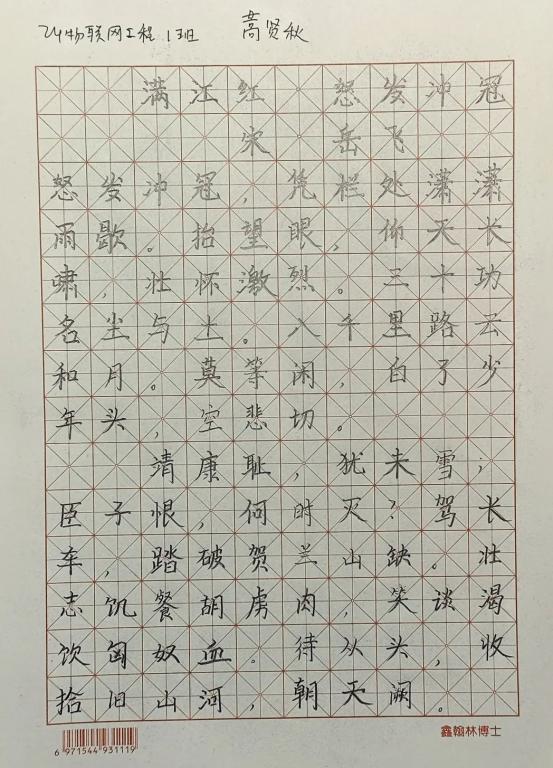 24物联网工程1班 蒿贤秋
满江红 怒发冲冠
宋 岳飞
怒发冲冠,凭栏处潇潇
雨歇。抬望眼,仰天长
啸,壮怀激烈。三十功
名尘与土。八千里路云
和月。莫等闲,白了少
年头,空悲切。
靖康耻,犹未雪;
臣子恨,何时灭?驾长
车,踏破贺兰山缺。壮
志饥餐胡虏肉,笑谈渴
饮匈奴血。待从头,收
拾旧山河,朝天阙。
6 971544 931119
鑫翰林博士